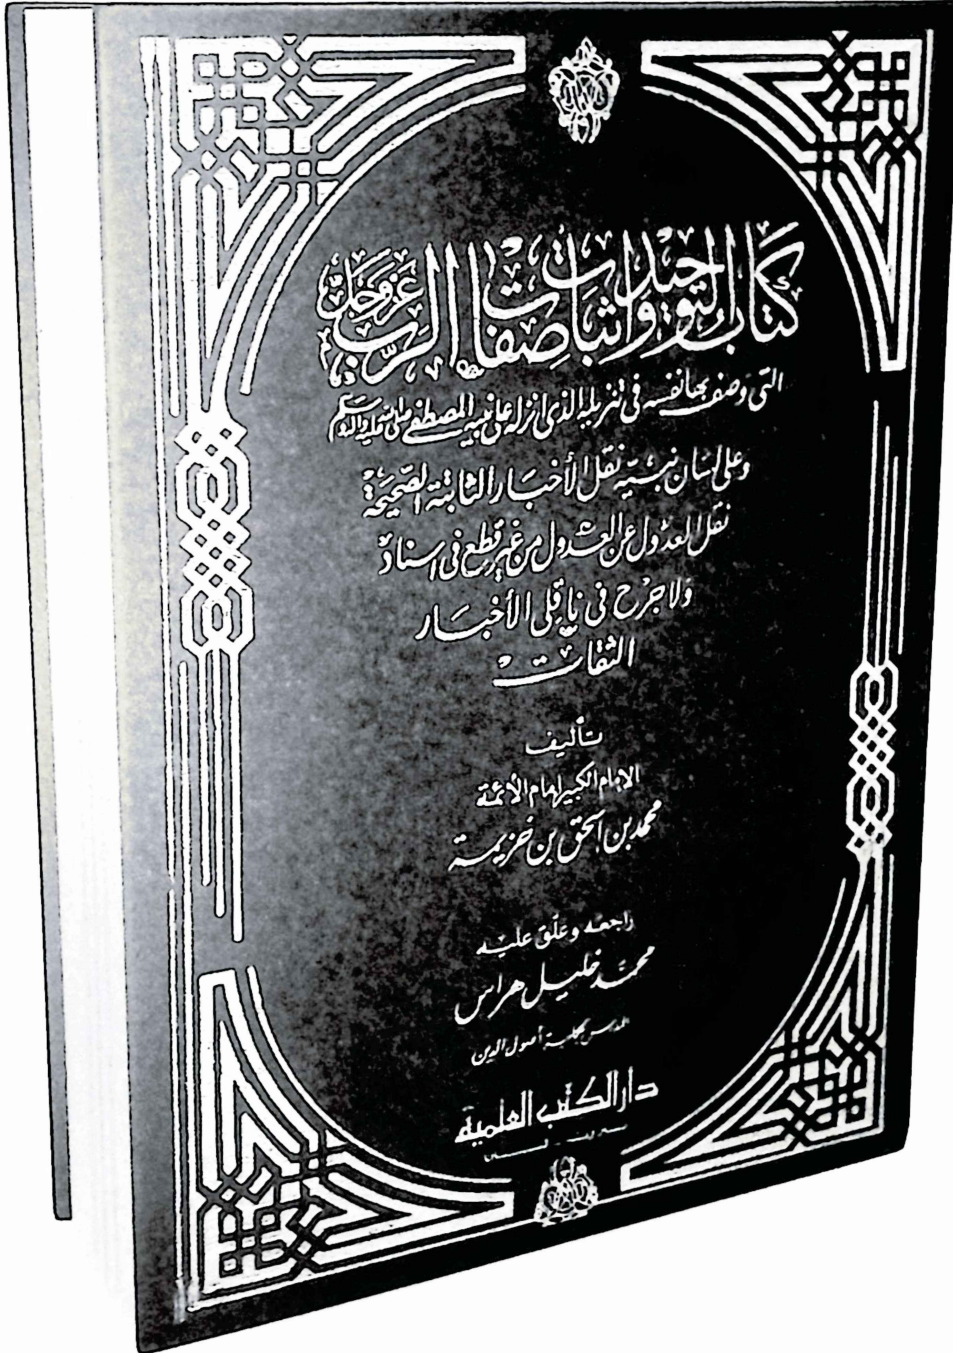 كتاب التوحيد وإثبات صفات الرب عز وجل
التي وصف بها نفسه في تنزيله الذي انزله على نبيه المصطفى صلى الله عليه وسلم
وعلى لسان نبيه نقل الأخبار الثابتة الصحيحة
نقل العدول عن العدول من غير قطع في اسناد
ولا جرح في ناقلي الأخبار
الثقات
تأليف
الإمام الكبير إمام الأئمة
محمد بن اسحق بن خزيمة
راجعه وعلق عليه
محمد خليل هراس
المدرس بكلية أصول الدين
دار الكتب العلمية